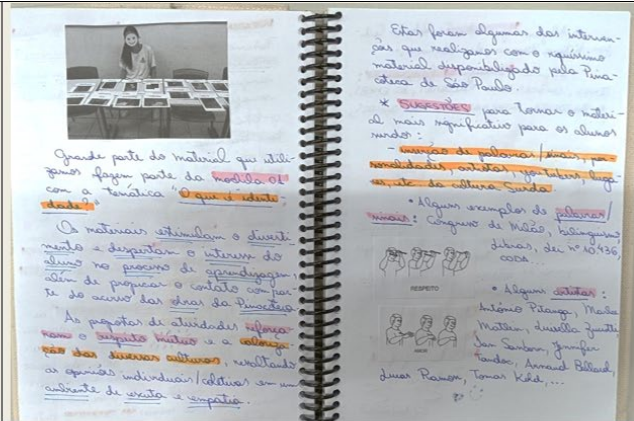 Grande parte do material que utili-
zamos fazem parte da mochila 01
com a temática "O que é identi-
dade?"
Os materiais estimulam o diverti
mento e despertam o interesse do
aluno no processo de aprendizagem,
além de propiciar o contato com par-
te do acervo das obras da Pinacoteca.
As propostas de atividades reforça-
ram o respeito mútuo e a valoriza-
ção das diversas culturas, resultando
as opiniões individuais/coletivas em um
ambiente de escuta e empatia.
Estas foram algumas das interven-
ções que realizamos com o riquíssimo
material disponibilizado pela Pina-
coteca de São Paulo.
* SUGESTÕES para tornar o materi-
al mais significativo para os alunos
surdos:
- inserção de palavras/sinais, per-
sonalidades, artistas, youtubers, luga-
res, etc. da cultura Surda.
• Alguns exemplos de palavras/
sinais: Congresso de Milão, bilinguismo,
Libras, Lei nº 10.436,
CODA...
RESPEITO
• Alguns artistas:
Antônio Pitanga, Marlee
Matlin,
AMOR
Lucas Ramon, Tomas Kold,...